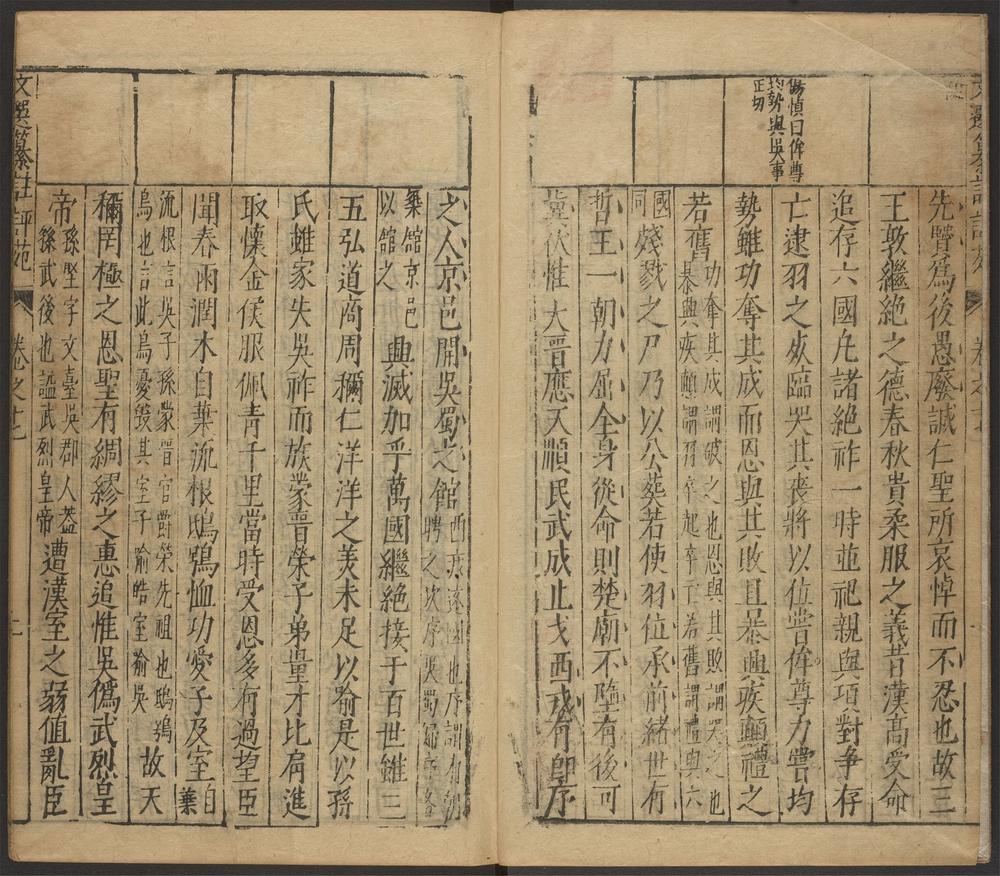 楊慎曰侔尊
均勢與吳事
正切
先賢爲後愚廢誠仁聖所哀悼而不忍也故三
王敦繼絶之德春秋貴柔服之義昔漢高受命
追存六國凡諸絶祚一時並祀親與項對爭存
亡逮羽之死臨哭其喪將以位嘗侔尊力嘗均
勢雖功奪其成而恩與其敗且暴興疾顛禮之
若舊功奪其成謂破之也恩與其敗謂哭之也暴興疾顛謂羽卒起卒亡若舊謂禮與六
國同殘戮之尸乃以公葬若使羽位承前緒世有
哲王一朝力屈全身從命則楚廟不隳有後可
冀伏惟大晉應天順民武成止戈西戎有即序
之人京邑開吳蜀之館西戎遠國也序謂有朝聘之次序吳蜀歸晉各
築館京邑以館之興滅加乎萬國繼絶接于百世雖三
五弘道商周稱仁洋洋之美未足以喻是以孫
氏雖家失吳祚而族蒙晉榮子弟量才比肩進
取懷金侯服佩青千里當時受恩多有過望臣
聞春雨潤木自葉流根鴟鴞恤功愛子及室自葉
流根言吳子孫蒙晉官爵榮先祖也鴟鴞鳥也言此鳥憂毀其室子喻皓室喻吳故天
稱罔極之恩聖有綢繆之惠追惟吳僞武烈皇
帝孫堅字文臺吳郡人蓋孫武後也謚武烈皇帝遭漢室之弱值亂臣
文選纂註評苑 卷之七